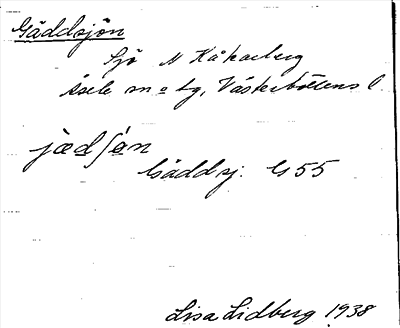 Gäddsjön
Sjö N Kåkarberg
Åsele sn o tg, Västerbottens l
jædʃøn
Gäddsj: G 55
Lisa Lidberg 1938